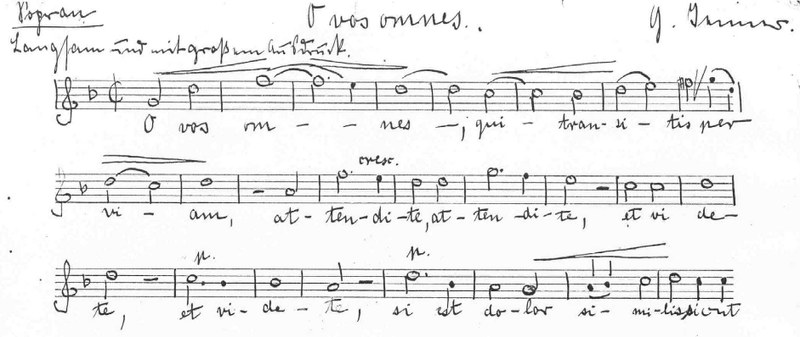 Sopran
O vos omnes.
G. Jenner.
Langsam und mit großem Ausdruck.
O vos om - - nes -, qui - tran - si - tis per
cresc.
vi - am, at - ten - di - te, at - ten - di - te, et vi de -
p. p.
te, et vi - de - te, si est do - lor si - mi - lis sicut